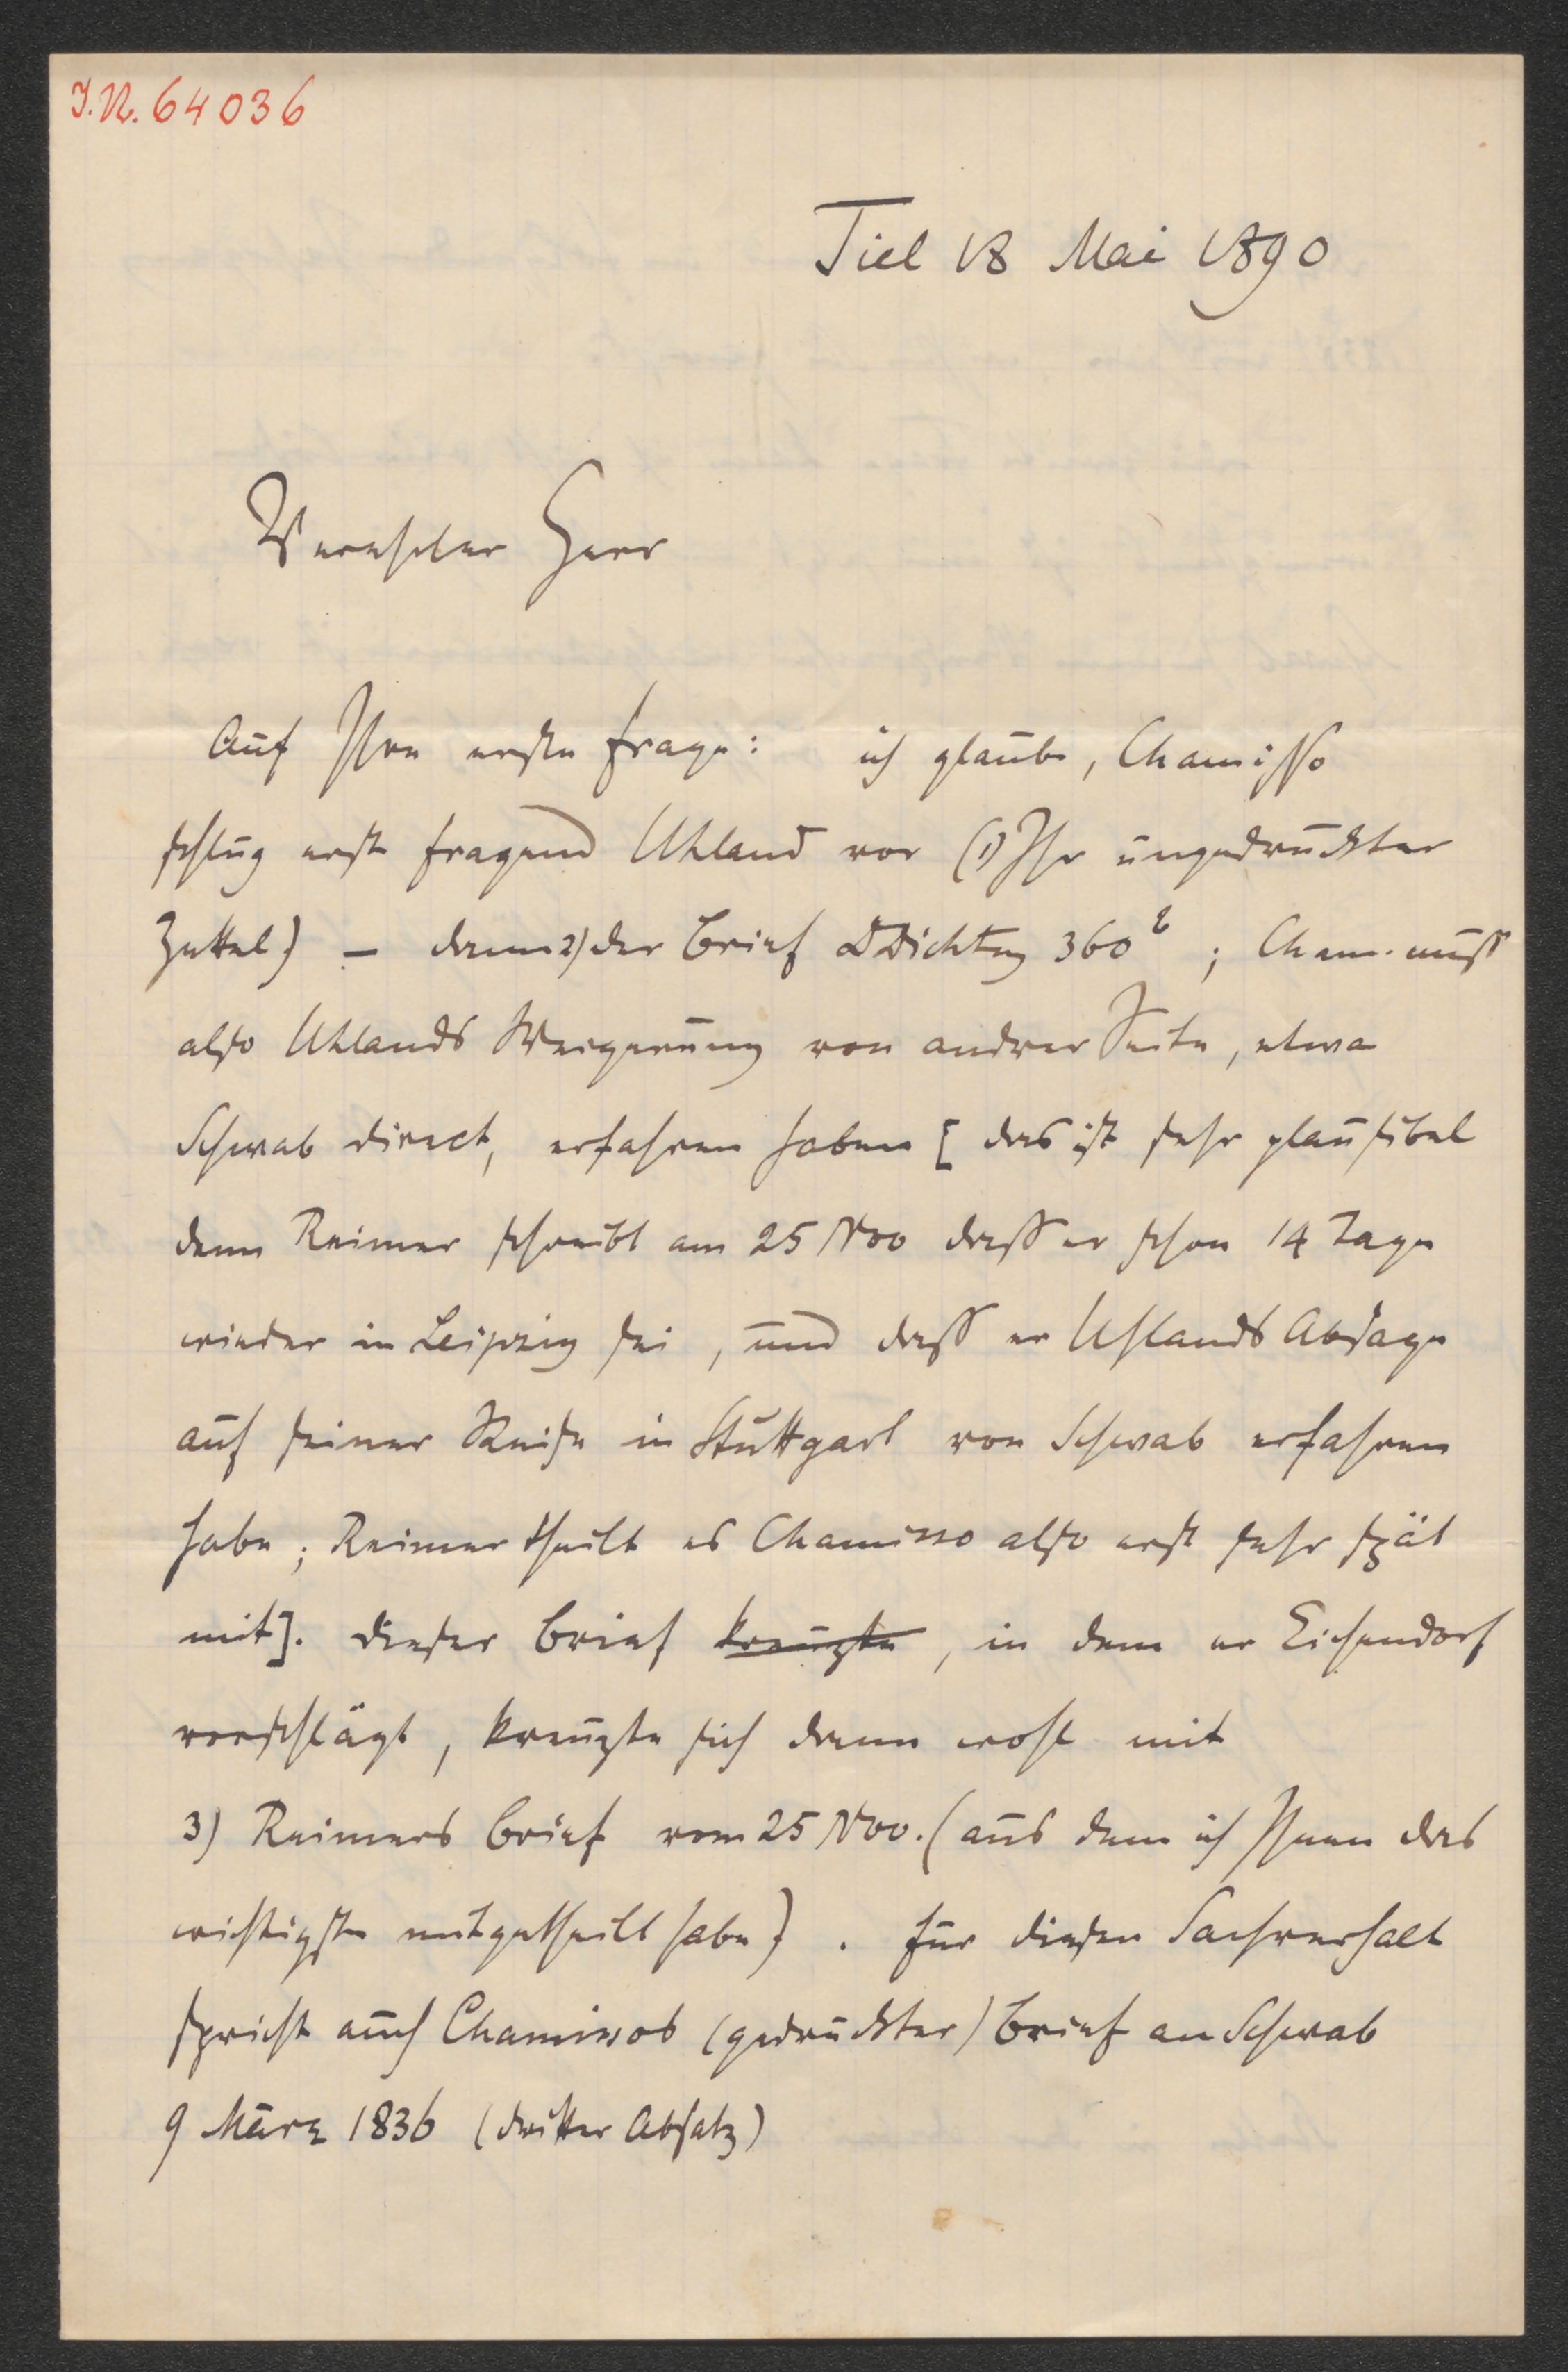 J.N. 64036
Tiel 18 Mai 1890
Verehrter Herr
Auf Ihre erste Frage: ich glaube, Chamisso
schlug erst fragend Uhland vor (1) Ihr ungedruckter
Zettel) – dann 2) der Brief DDichtung 360 b; Cham. muss
also Uhlands Weigerung von andrer Seite, etwa
Schwab direct, erfahren haben [das ist sehr plausibel
denn Reimer schreibt am 25 Nov dass er schon 14 Tage
wieder in Leipzig sei, und dass er Uhlands Absage
auf seiner Reise in Stuttgart von Schwab erfahren
habe; Reimer theilt es Chamisso also erst sehr spät
mit]. Dieser Brief kreuzte, in dem er Eichendorf
vorschlägt, kreuzte sich dann wohl mit
3) Reimers Brief vom 25 Nov. (aus dem ich Ihnen das
wichtigste mitgetheilt habe). Für diesen Sachverhalt
spricht auch Chamissos (gedruckter) Brief an Schwab
9 März 1836 (dritter Absatz)